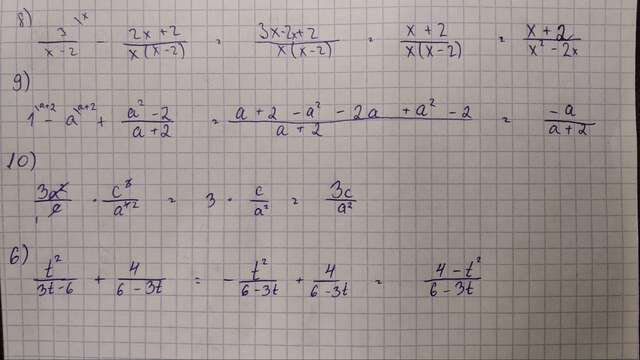 8) 3\x/(x-2) - (2x+2)/(x(x-2)) = (3x-2x+2)/(x(x-2)) = (x+2)/(x(x-2)) = (x+2)/(x²-2x)
9) 1\a+2 - a\a+2 + (a²-2)/(a+2) = (a+2-a²-2a+a²-2)/(a+2) = -a/(a+2)
10) 3a²/c · c²/a⁴ = 3 · c/a² = 3c/a²
6) t²/(3t-6) + 4/(6-3t) = - t²/(6-3t) + 4/(6-3t) = (4-t²)/(6-3t)